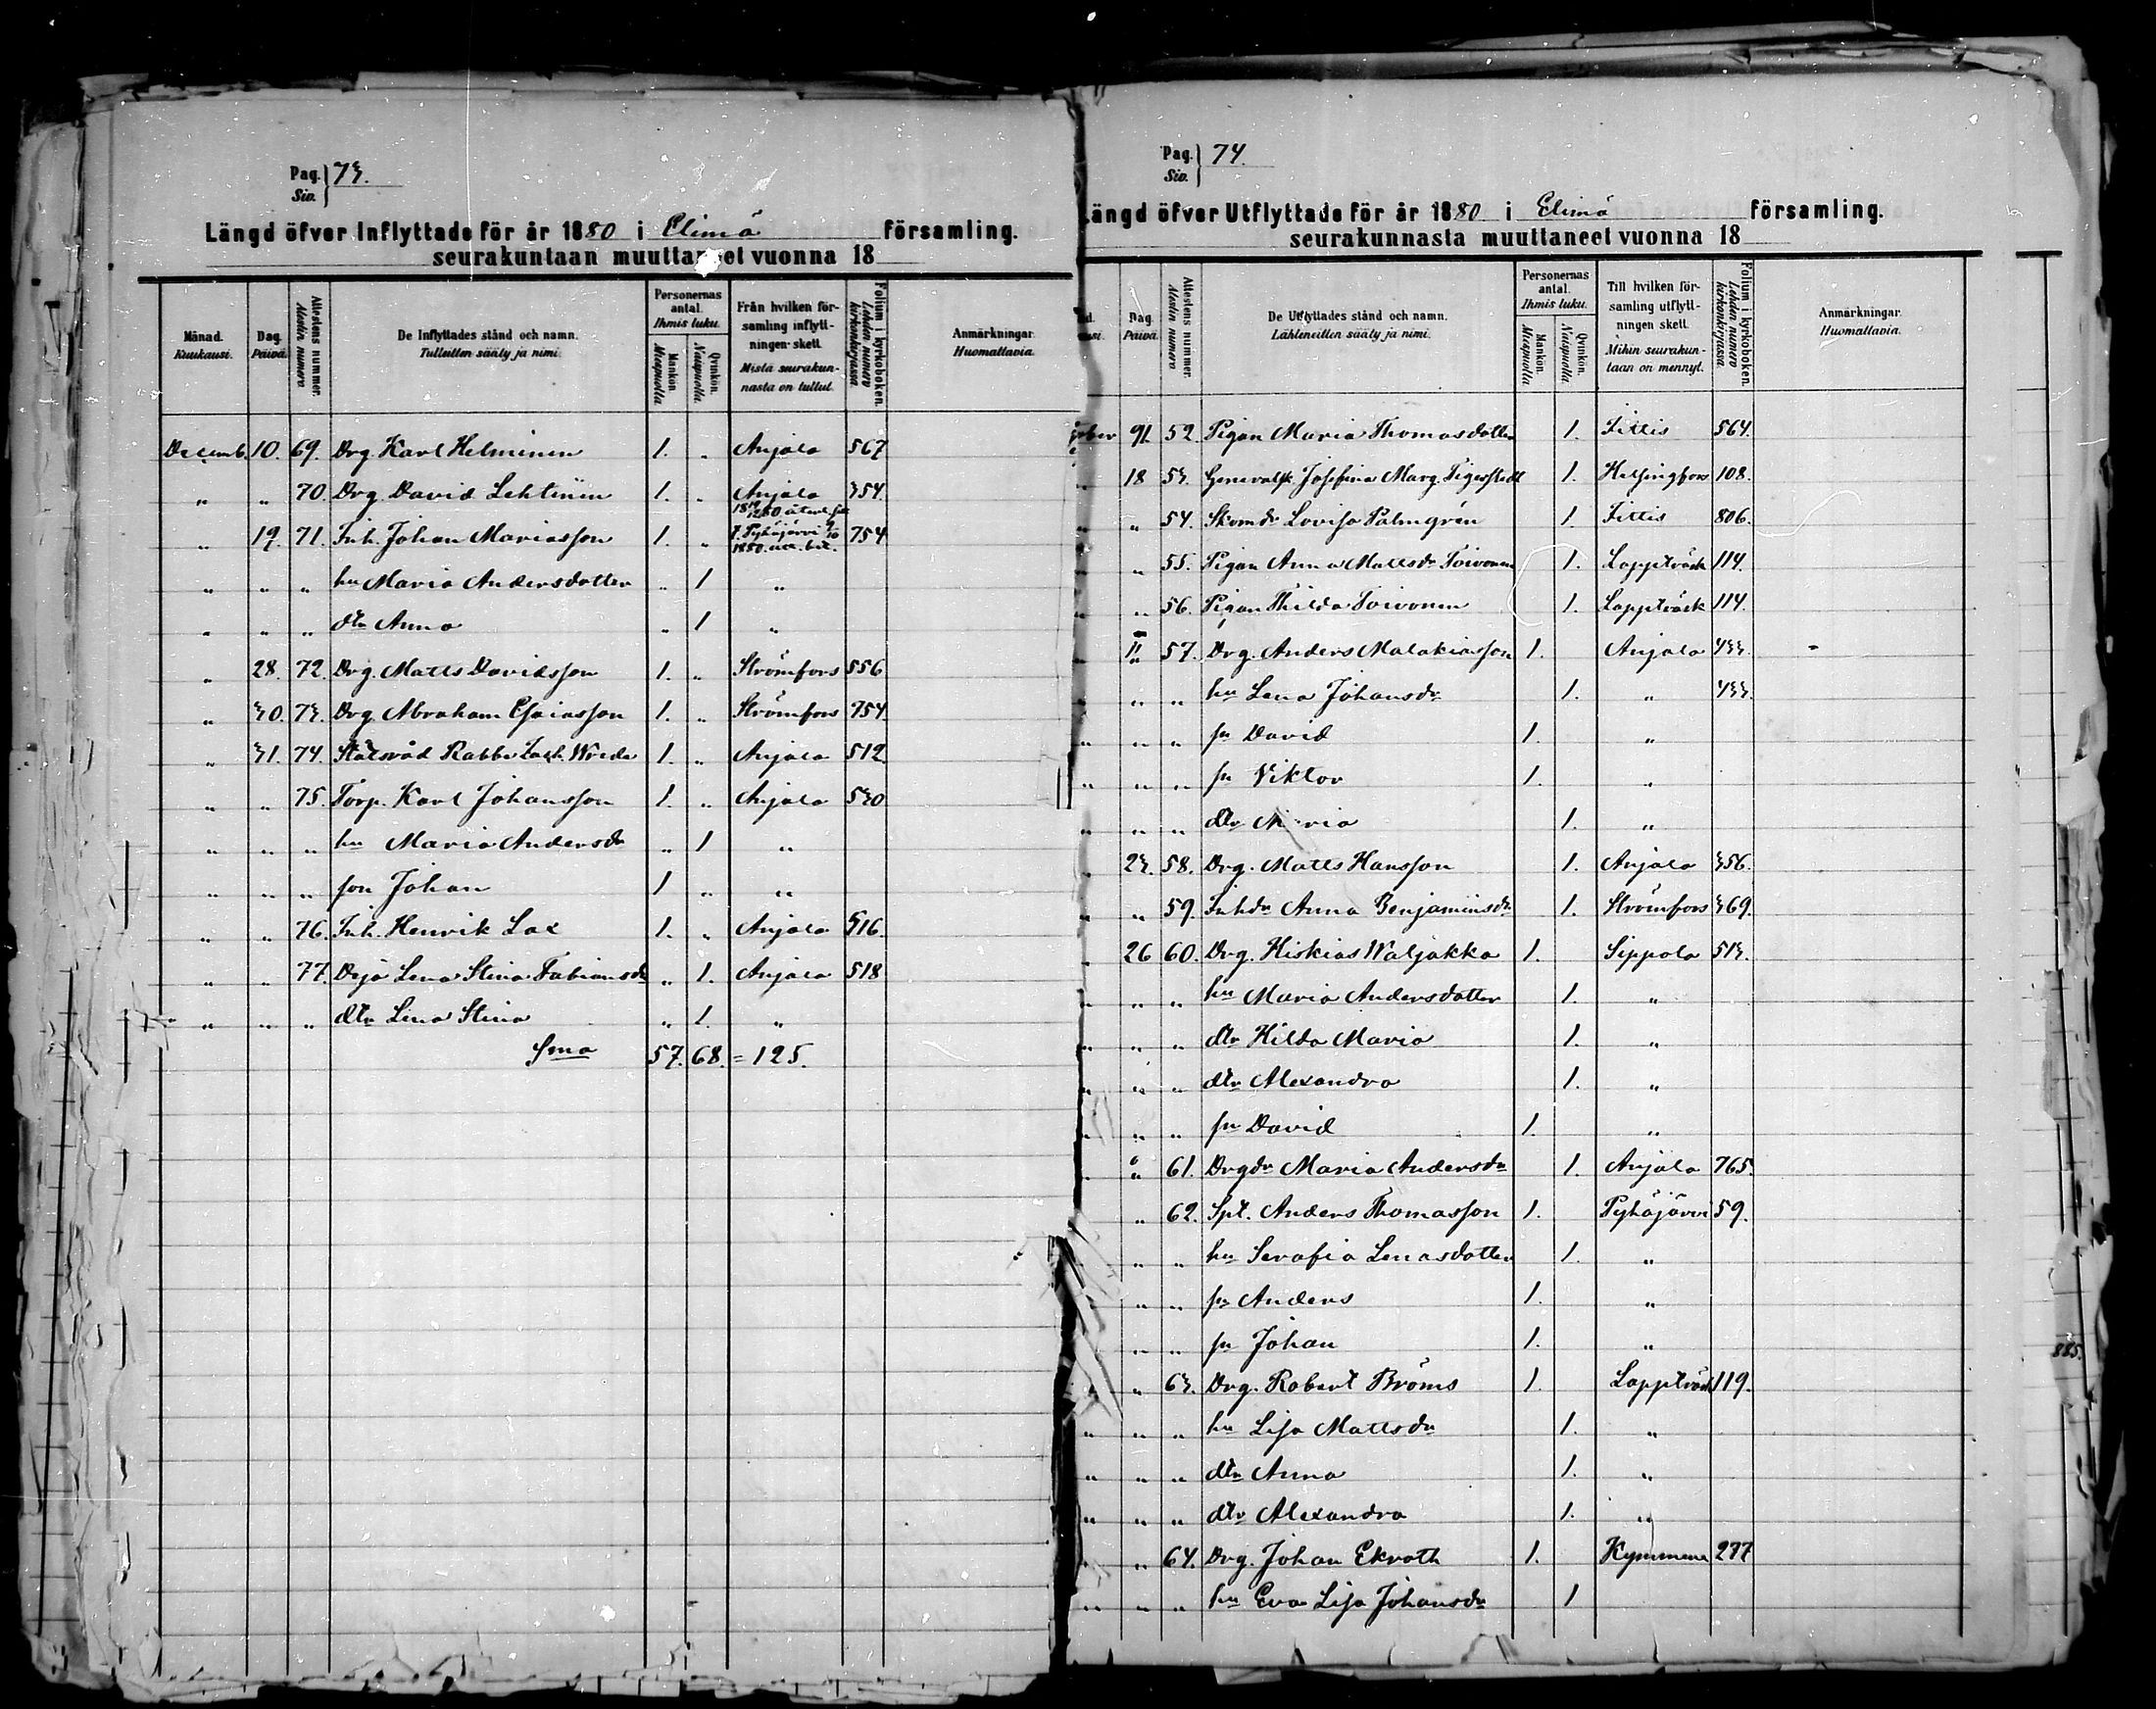 Pag. Siv. 73.
Längd öfver Inflyttade för år 1880 i Elimä församling.
seurakuntaan muuttaneet vuonna 18
Månad. Kuukausi. Dag. Päivä. Attestens nummer. Atestin numero. De Inflyttades stånd och namn. Tulleitten sääty ja nimi. Personernas antal. Ihmis luku. Mankön. Miespuolia. Qvinkön. Naispuolia. Från hvilken församling inflyttningen skett. Mistä seurakunnasta on tullut. Folium i kyrkoboken. Lehden numero kirkonkirjassa. Anmärkningar. Huomattavia.
Decemb. 10. 69. Drg. Karl Helminen 1. „ Anjala 567
„ „ 70. Drg. David Lehtinen 1. „ Anjala 354.
„ 19. 71. Inh. Johan Mariasson 1. „ Pyhäjärvi 754
„ „ „ hu Maria Andersdotter „ 1 „
„ „ „ dtr Anna „ 1 „
„ 28. 72. Drg. Matts Davidsson 1. „ Strömfors 556
„ 30. 73. Drg. Abraham Esaiasson 1. „ Strömfors 754.
„ 31. 74. Statsråd Rabbe Zach. Wrede 1. „ Anjala 512.
„ „ 75. Torp. Karl Johansson 1. „ Anjala 530
„ „ „ hu Maria Andersdr „ 1 „
„ „ „ son Johan 1 „ „
„ „ 76. Inh. Henrik Lax 1. „ Anjala 516.
„ „ 77. Deja Lena Stina Fabiansdr „ 1. Anjala 518
„ „ „ dtr Lina Stina „ 1. „
Sma 57. 68. = 125.
Pag. Siv. 74.
Längd öfver Utflyttade för år 1880 i Elimä församling.
seurakunnasta muuttaneet vuonna 18
Dag. Päivä. Attestens nummer. Atestin numero. De Utflyttades stånd och namn. Lähteneitten sääty ja nimi. Personernas antal. Ihmis luku. Mankön. Miespuolia. Qvinkön. Naispuolia. Till hvilken församling utflyttningen skett. Mihin seurakuntaan on mennyt. Folium i kyrkoboken. Lehden numero kirkonkirjassa. Anmärkningar. Huomattavia.
52. Pigan Maria Thomasdotter 1. Iittis 564.
18 53. Generalsk. Josefina Marg. Tigerstedt 1. Helsingfors 108.
„ „ 54. Skomdr Lovisa Palmgrén 1. Iittis 806.
„ „ 55. Pigan Anna Mattsdr Toivonen 1. Lappträsk 114.
„ „ 56. Pigan Thilda Toivonen 1. Lappträsk 114.
„ „ 57. Drg. Anders Malakiasson 1. Anjala 433.
„ „ „ hu Lena Johansdr 1. „ 433.
„ „ „ sn David 1. „
„ „ „ sn Viktor 1. „
„ „ „ dtr Maria 1. „
„ 23. 58. Drg. Matts Hansson 1. Anjala 356.
„ „ 59. Inhdr Anna Benjaminsdr 1. Strömfors 369.
26 60. Drg. Hiskias Waljakka 1. Sippola 513.
„ „ „ hu Maria Andersdotter 1. „
„ „ „ dtr Hilda Maria 1. „
„ „ „ dtr Alexandra 1. „
„ „ „ sn David 1. „
„ „ 61. Drgdr Maria Andersdr 1. Anjala 765.
„ 62. Spt. Anders Thomasson 1. Pyhäjärvi 59.
„ „ hu Serafia Lenasdotter 1. „
„ „ sn Anders 1. „
„ „ sn Johan 1. „
„ 63. Drg. Robert Bröms 1. Lappträsk 119.
„ „ „ hu Lisa Mattsdr 1. „
„ „ „ dtr Anna 1. „
„ „ „ dtr Alexandra 1. „
„ „ 64. Drg. Johan Ekroth 1. Kymmene 277
„ „ „ hu Eva Lisa Johansdr 1
885.